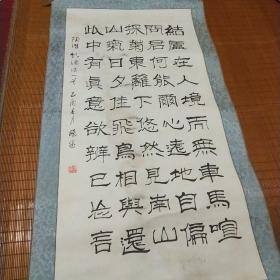 結廬在人境而無車馬喧
問君何能爾心遠地自偏
採菊東籬下悠然見南山
山氣日夕佳飛鳥相與還
此中有眞意欲辨已忘言
陶淵明飲酒詩一首 乙酉